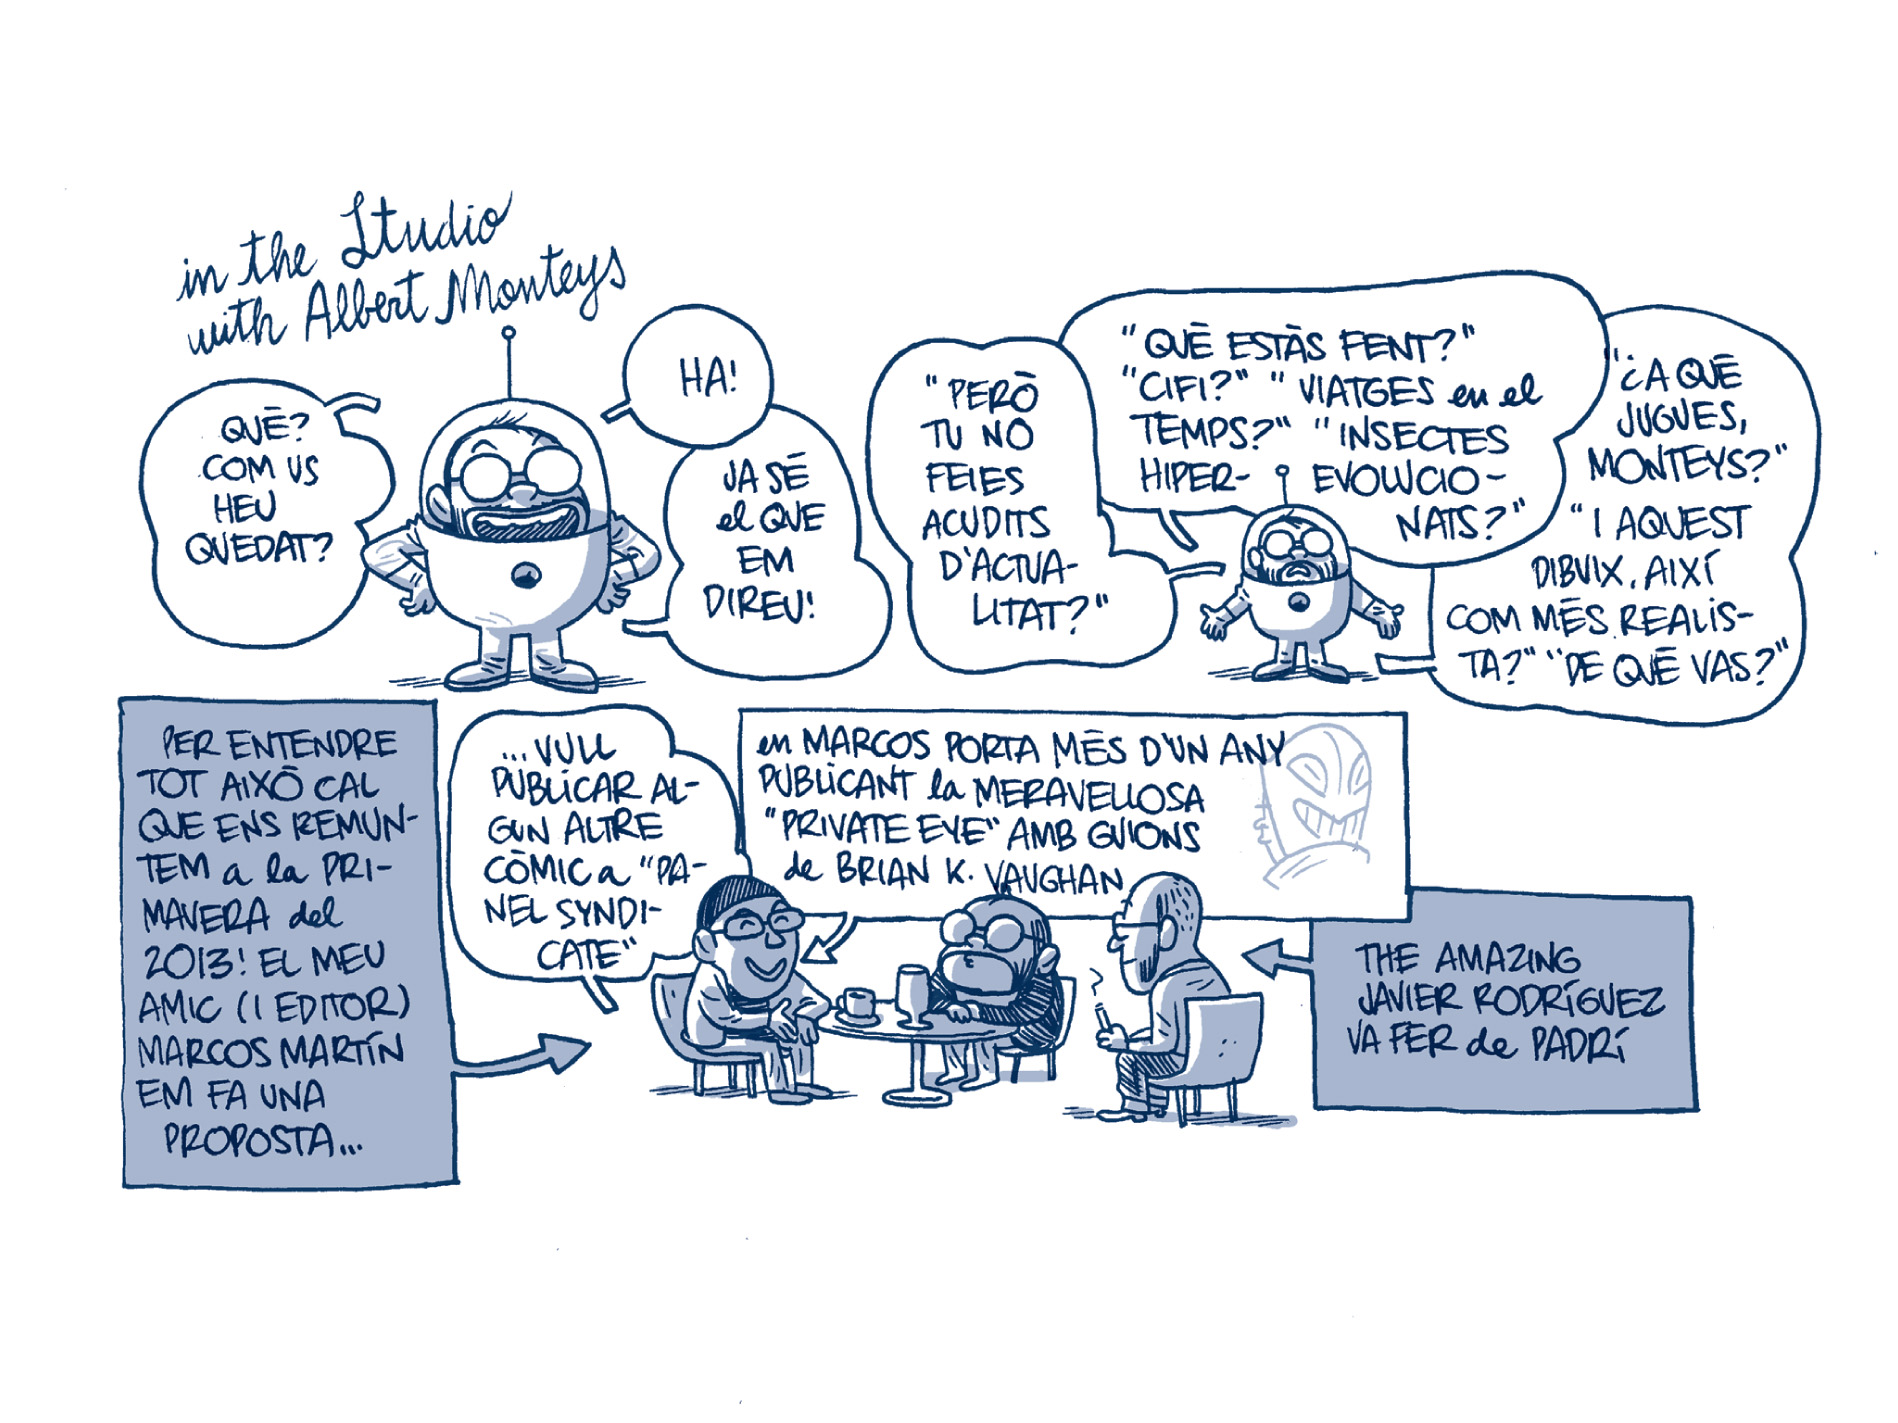 in the Studio
with Albert Monteys
QUÈ?
COM US
HEU
QUEDAT?
HA!
JA SÉ
el QUE
EM
DIREU!
"PERÒ
TU NO
FEIES
ACUDITS
D'ACTUA-
LITAT?"
"QUÈ ESTÀS FENT?"
"CIFI?" "VIATGES en el
TEMPS?" "INSECTES
HIPER- EVOLUCIO-
NATS?"
"¿A QUÈ
JUGUES,
MONTEYS?"
"I AQUEST
DIBUIX, AIXÍ
COM MÉS REALIS-
TA?" "DE QUÈ VAS?"
PER ENTENDRE
TOT AIXÒ CAL
QUE ENS REMUN-
TEM a la PRI-
MAVERA del
2013! EL MEU
AMIC (I EDITOR)
MARCOS MARTÍN
EM FA UNA
PROPOSTA...
...VULL
PUBLICAR AL-
GUN ALTRE
CÒMIC a "PA-
NEL SYNDI-
CATE"
en MARCOS PORTA MÉS D'UN ANY
PUBLICANT la MERAVELLOSA
"PRIVATE EYE" AMB GUIONS
de BRIAN K. VAUGHAN
THE AMAZING
JAVIER RODRÍGUEZ
VA FER de PADRÍ